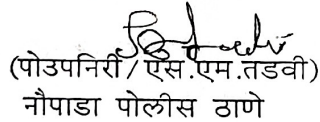 (पोउपनिरी/एस.एम.तडवी)
नौपाडा पोलीस ठाणे